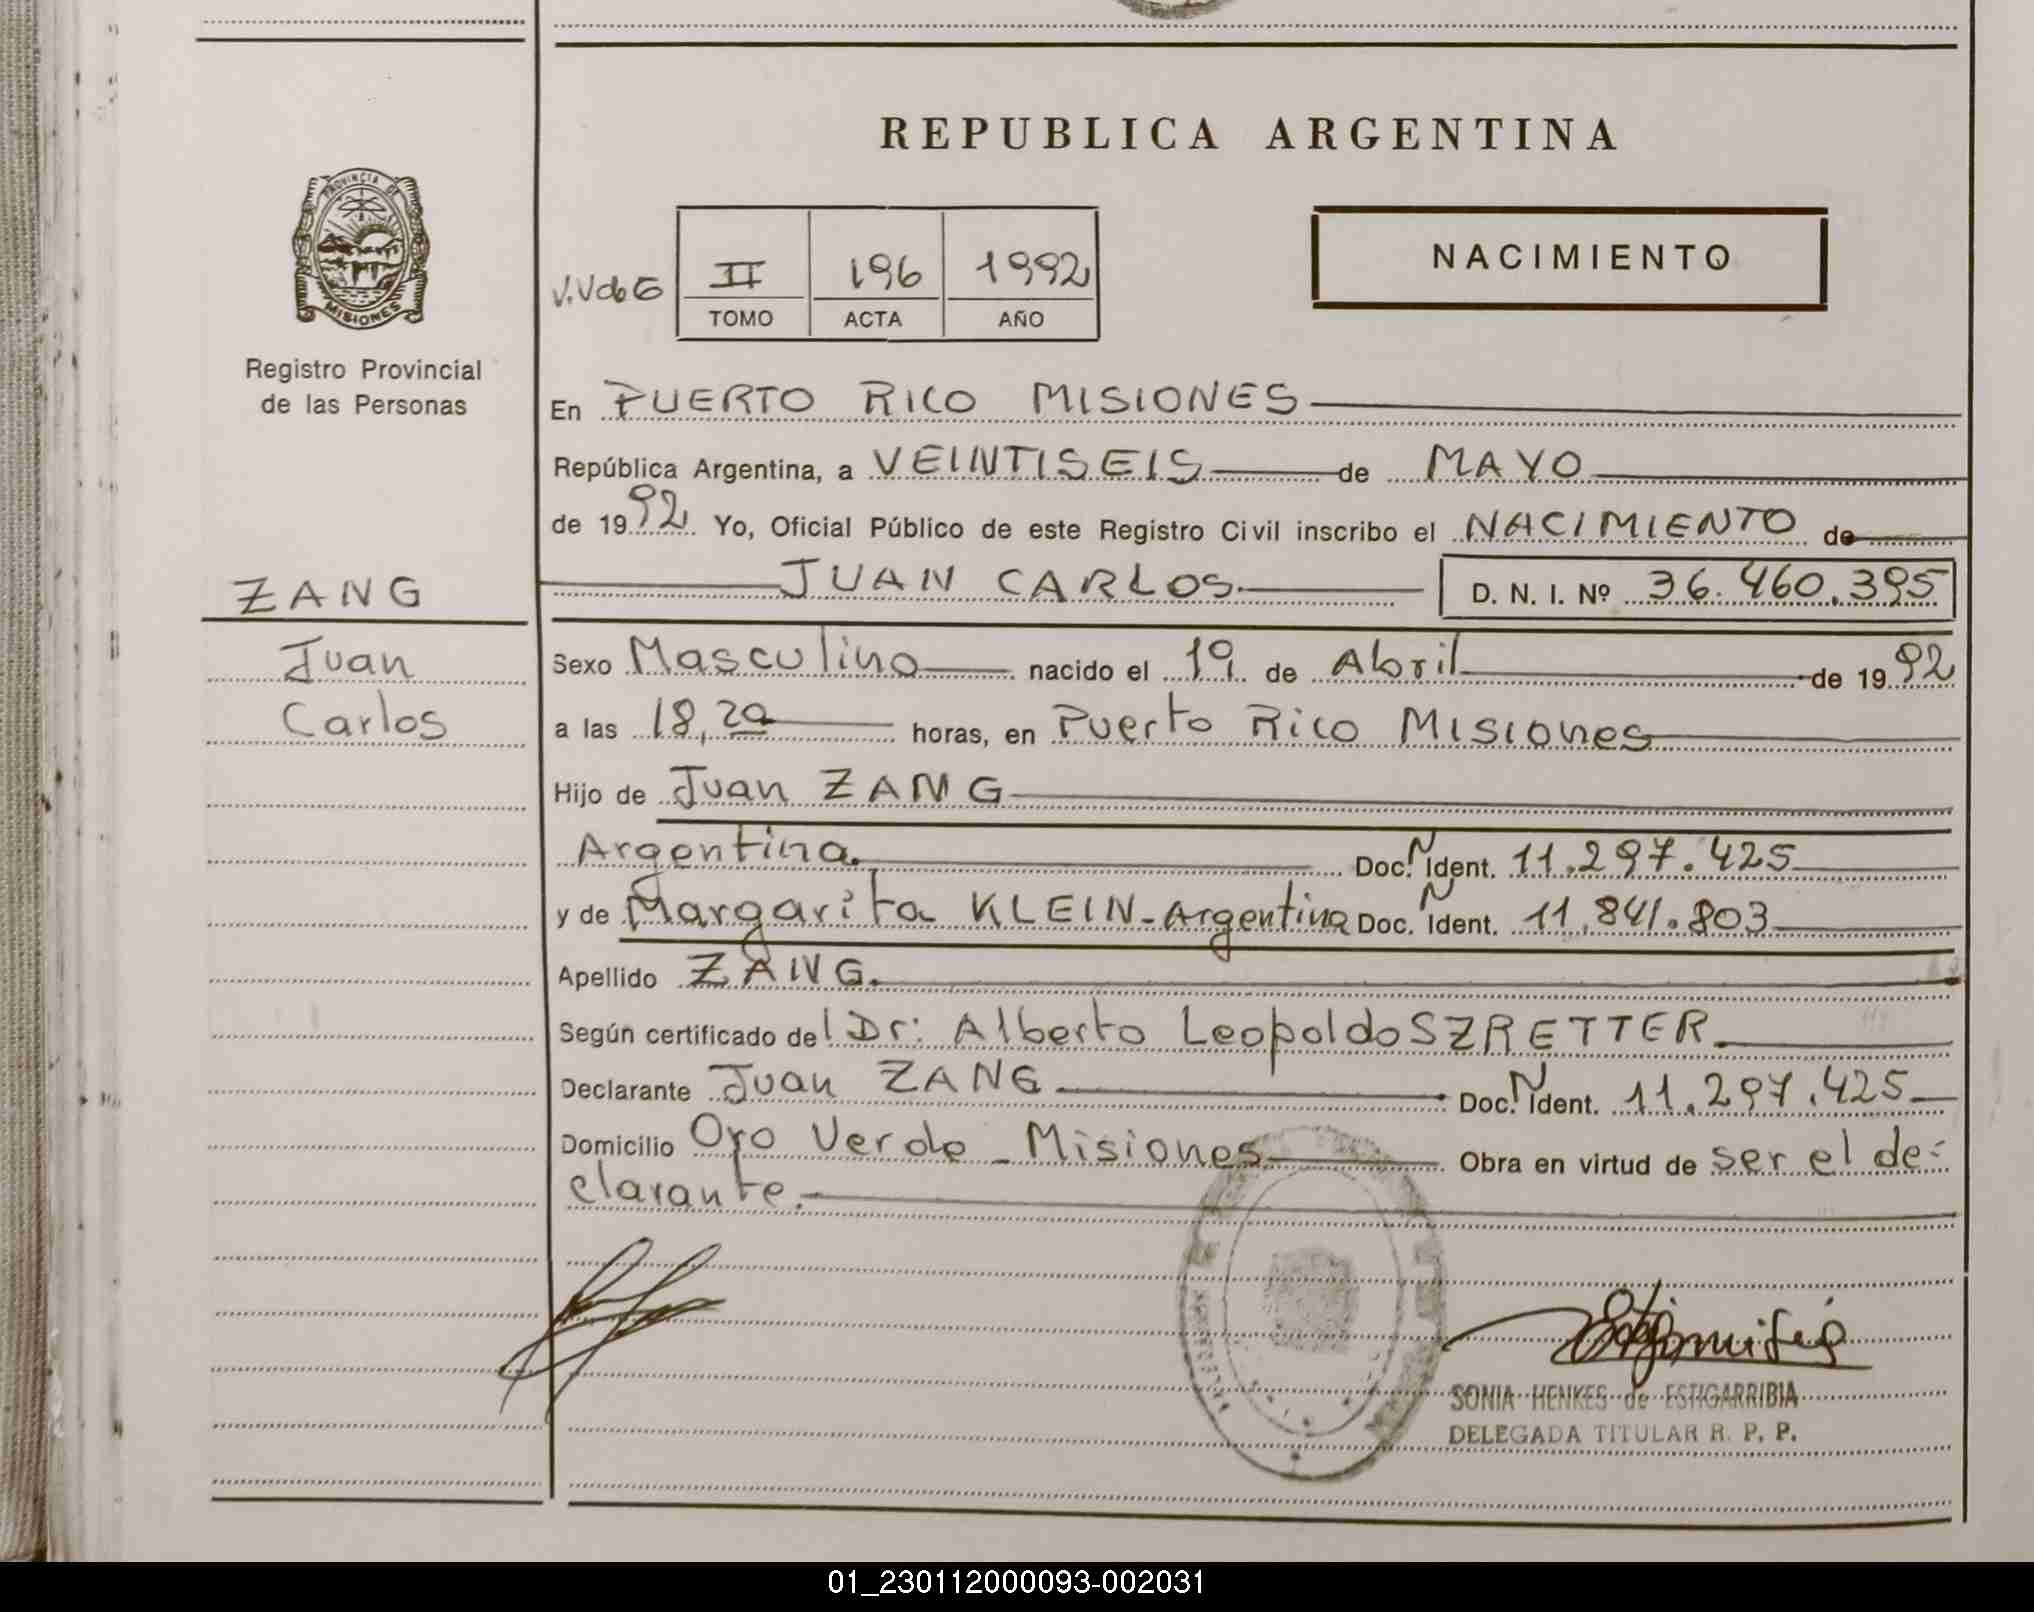 REPUBLICA ARGENTINA
PROVINCIA DE
MISIONES
Registro Provincial
de las Personas
II 196 1992
TOMO ACTA AÑO
NACIMIENTO
En PUERTO RICO MISIONES
República Argentina, a VEINTISEIS de MAYO
de 1992 Yo, Oficial Público de este Registro Civil inscribo el NACIMIENTO de
ZANG
JUAN CARLOS D. N. I. Nº 36.460.395
Juan
Carlos
Sexo Masculino nacido el 19 de Abril de 1992
a las 18,20 horas, en Puerto Rico Misiones
Hijo de Juan ZANG
Argentina Doc. N Ident. 11.297.425
y de Margarita KLEIN-Argentina Doc. N Ident. 11.841.803
Apellido ZANG.
Según certificado del Dr: Alberto Leopoldo SZRETTER
Declarante Juan ZANG Doc. N Ident. 11.297.425
Domicilio Oro Verde - Misiones Obra en virtud de ser el de-
clarante.
SONIA HENKES de ESTIGARRIBIA
DELEGADA TITULAR R. P. P.
01_230112000093-002031